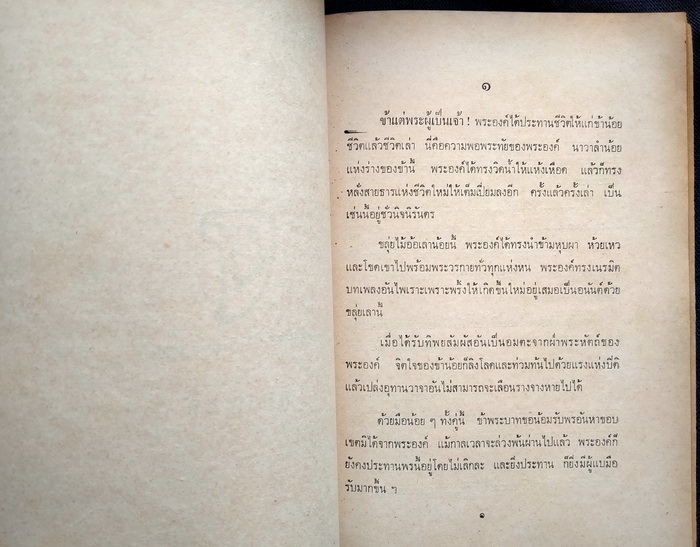 ๑
ข้าแต่พระผู้เป็นเจ้า ! พระองค์ได้ประทานชีวิตให้แก่ข้าน้อย
ชีวิตแล้วชีวิตเล่า นี่คือความพอพระทัยของพระองค์ นาวาลำน้อย
แห่งร่างของข้านี้ พระองค์ได้ทรงวิดน้ำให้แห้งเหือด แล้วก็ทรง
หลั่งสายธารแห่งชีวิตใหม่ให้เต็มเปี่ยมลงอีก ครั้งแล้วครั้งเล่า เป็น
เช่นนี้อยู่ชั่วนิจนิรันดร
ขลุ่ยไม้อ้อเลาน้อยนี้ พระองค์ได้ทรงนำข้ามหุบผา ห้วยเหว
และโขดเขาไปพร้อมพระวรกายทั่วทุกแห่งหน พระองค์ทรงเนรมิต
บทเพลงอันไพเราะเพราะพริ้งให้เกิดขึ้นใหม่อยู่เสมอเป็นอนันต์ด้วย
ขลุ่ยเลานี้
เมื่อได้รับทิพยสัมผัสอันเป็นอมตะจากฝ่าพระหัตถ์ของ
พระองค์ จิตใจของข้าน้อยก็ลิงโลดและท่วมท้นไปด้วยแรงแห่งปีติ
แล้วเปล่งอุทานวาจาอันไม่สามารถจะเลือนรางจางหายไปได้
ด้วยมือน้อย ๆ ทั้งคู่นี้ ข้าพระบาทขอน้อมรับพรอันหาขอบ
เขตมิได้จากพระองค์ แม้กาลเวลาจะล่วงพ้นผ่านไปแล้ว พระองค์ก็
ยังคงประทานพรนี้อยู่โดยไม่เลิกละ และยิ่งประทาน ก็ยิ่งมีผู้แบมือ
รับมากขึ้น ๆ
๑